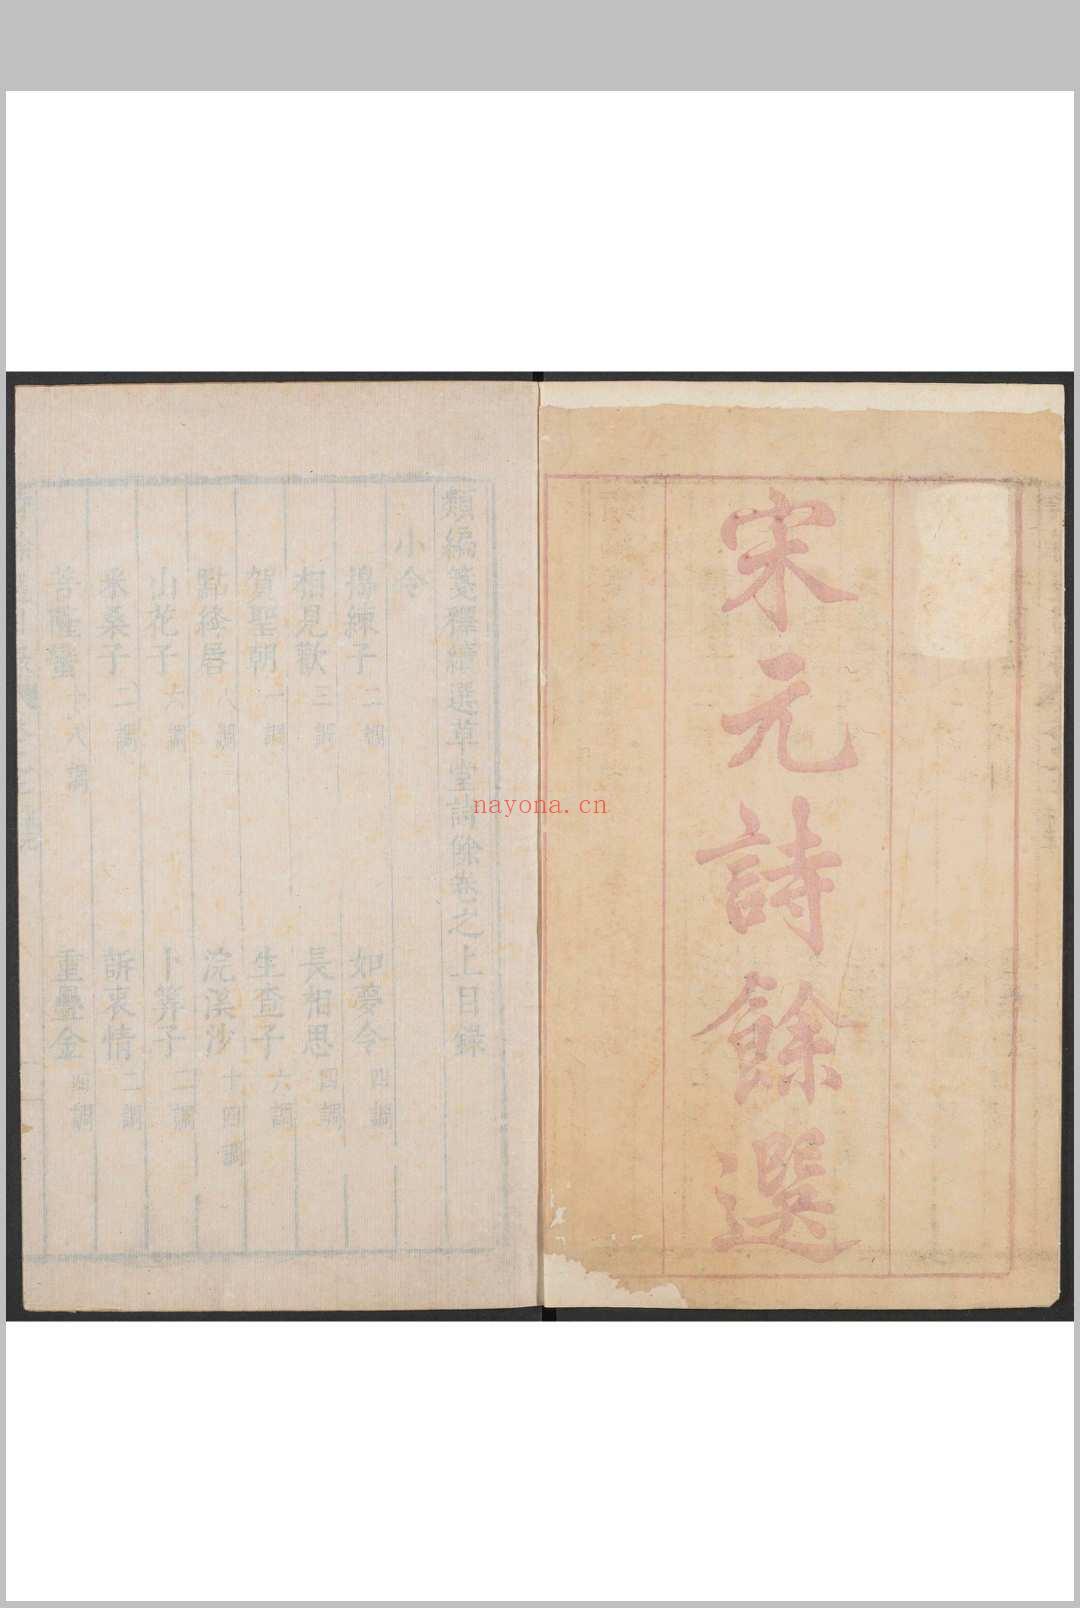 宋元詩餘選
類編箋釋續選草堂詩餘卷之上目錄
小令
搗練子二調 如夢令四調
相見歡三調 長相思四調
賀聖朝一調 生查子六調
點絳唇八調 浣溪沙十四調
山花子六調 卜筭子二調
采桑子二調 訴衷情二調
菩薩蠻十八調 重疊金四調
nayona.cn